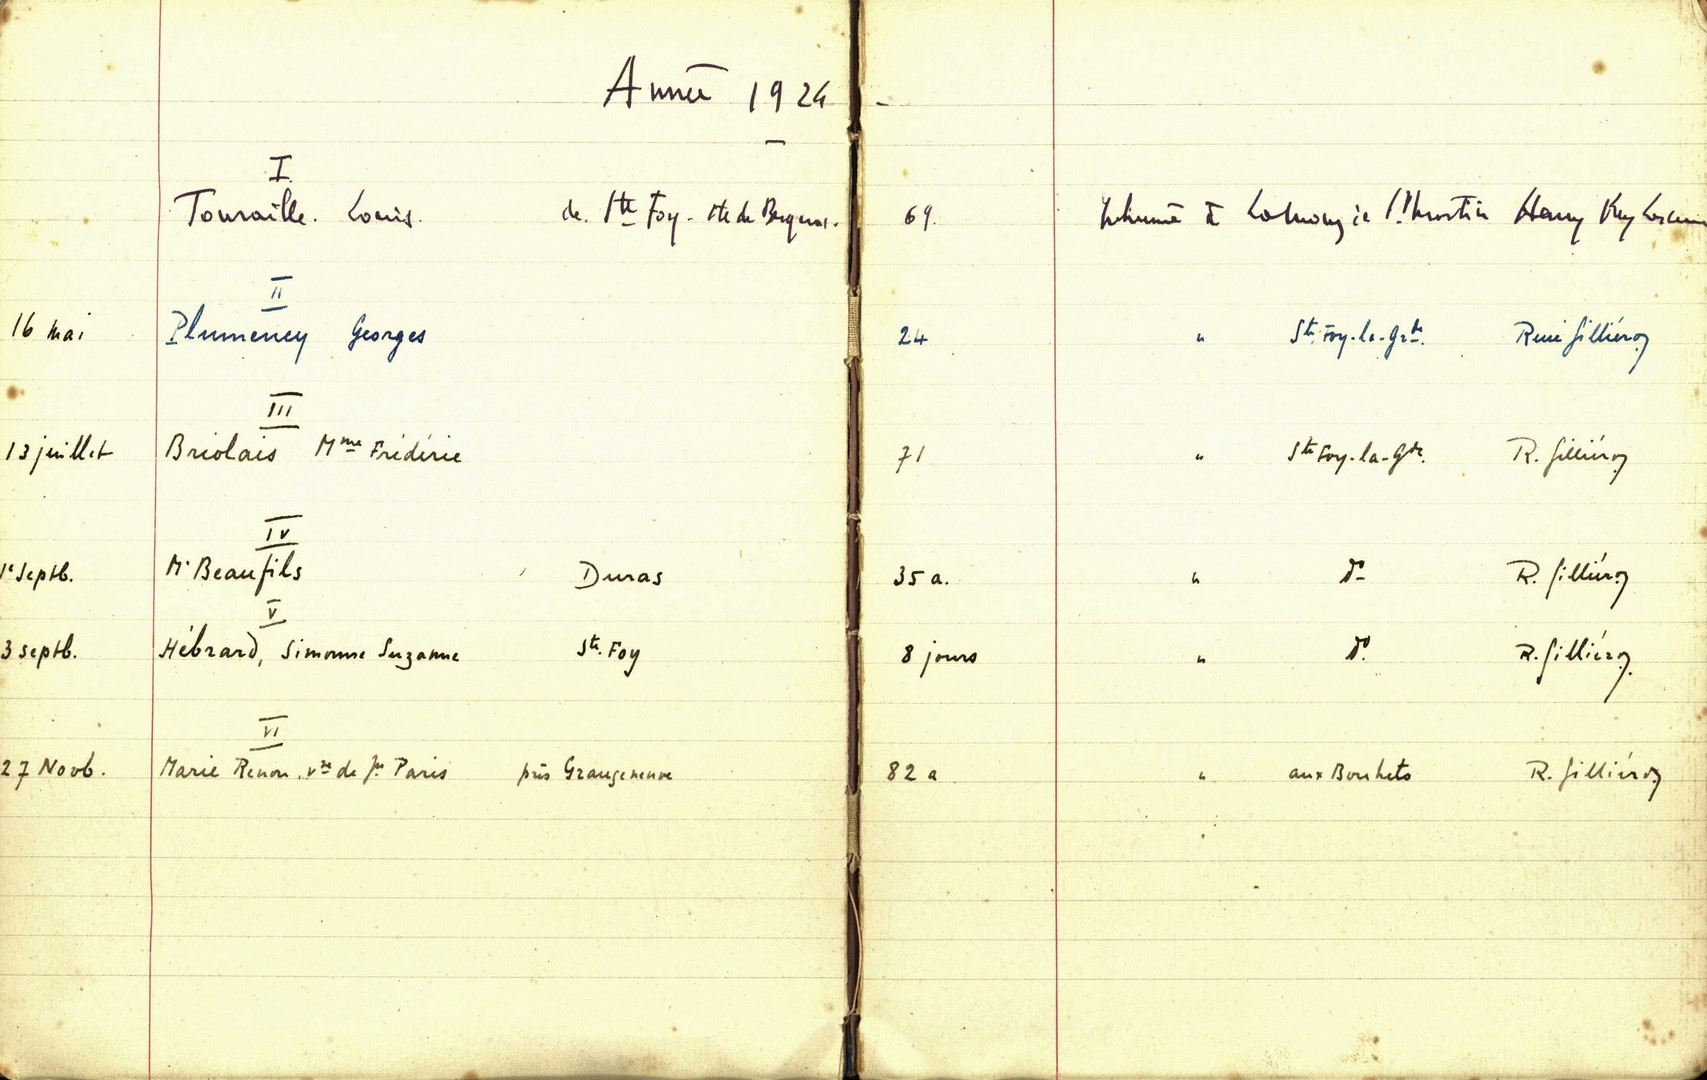 Année 1924 -
I
Touraille. Louis. de Ste Foy. rte de Bergerac. 69. Inhumé à Lamonzie St Martin Henry
II
16 mai Plumeney Georges 24 " Ste Foy-la-Grde. René Gilliéron
III
13 juillet Briolais Mme Frédéric 71 " Ste Foy-la-Gde. R. Gilliéron
IV
1e Septb. Mr Beaufils Duras 35 a. " do R. Gilliéron
V
3 septb. Hébrard, Simonne Suzanne Ste. Foy 8 jours " do. R. Gilliéron.
VI
27 Novb. Marie Renon, vve de Jn Paris près Grangeneuve 82 a " aux Bouhets R. Gilliéron